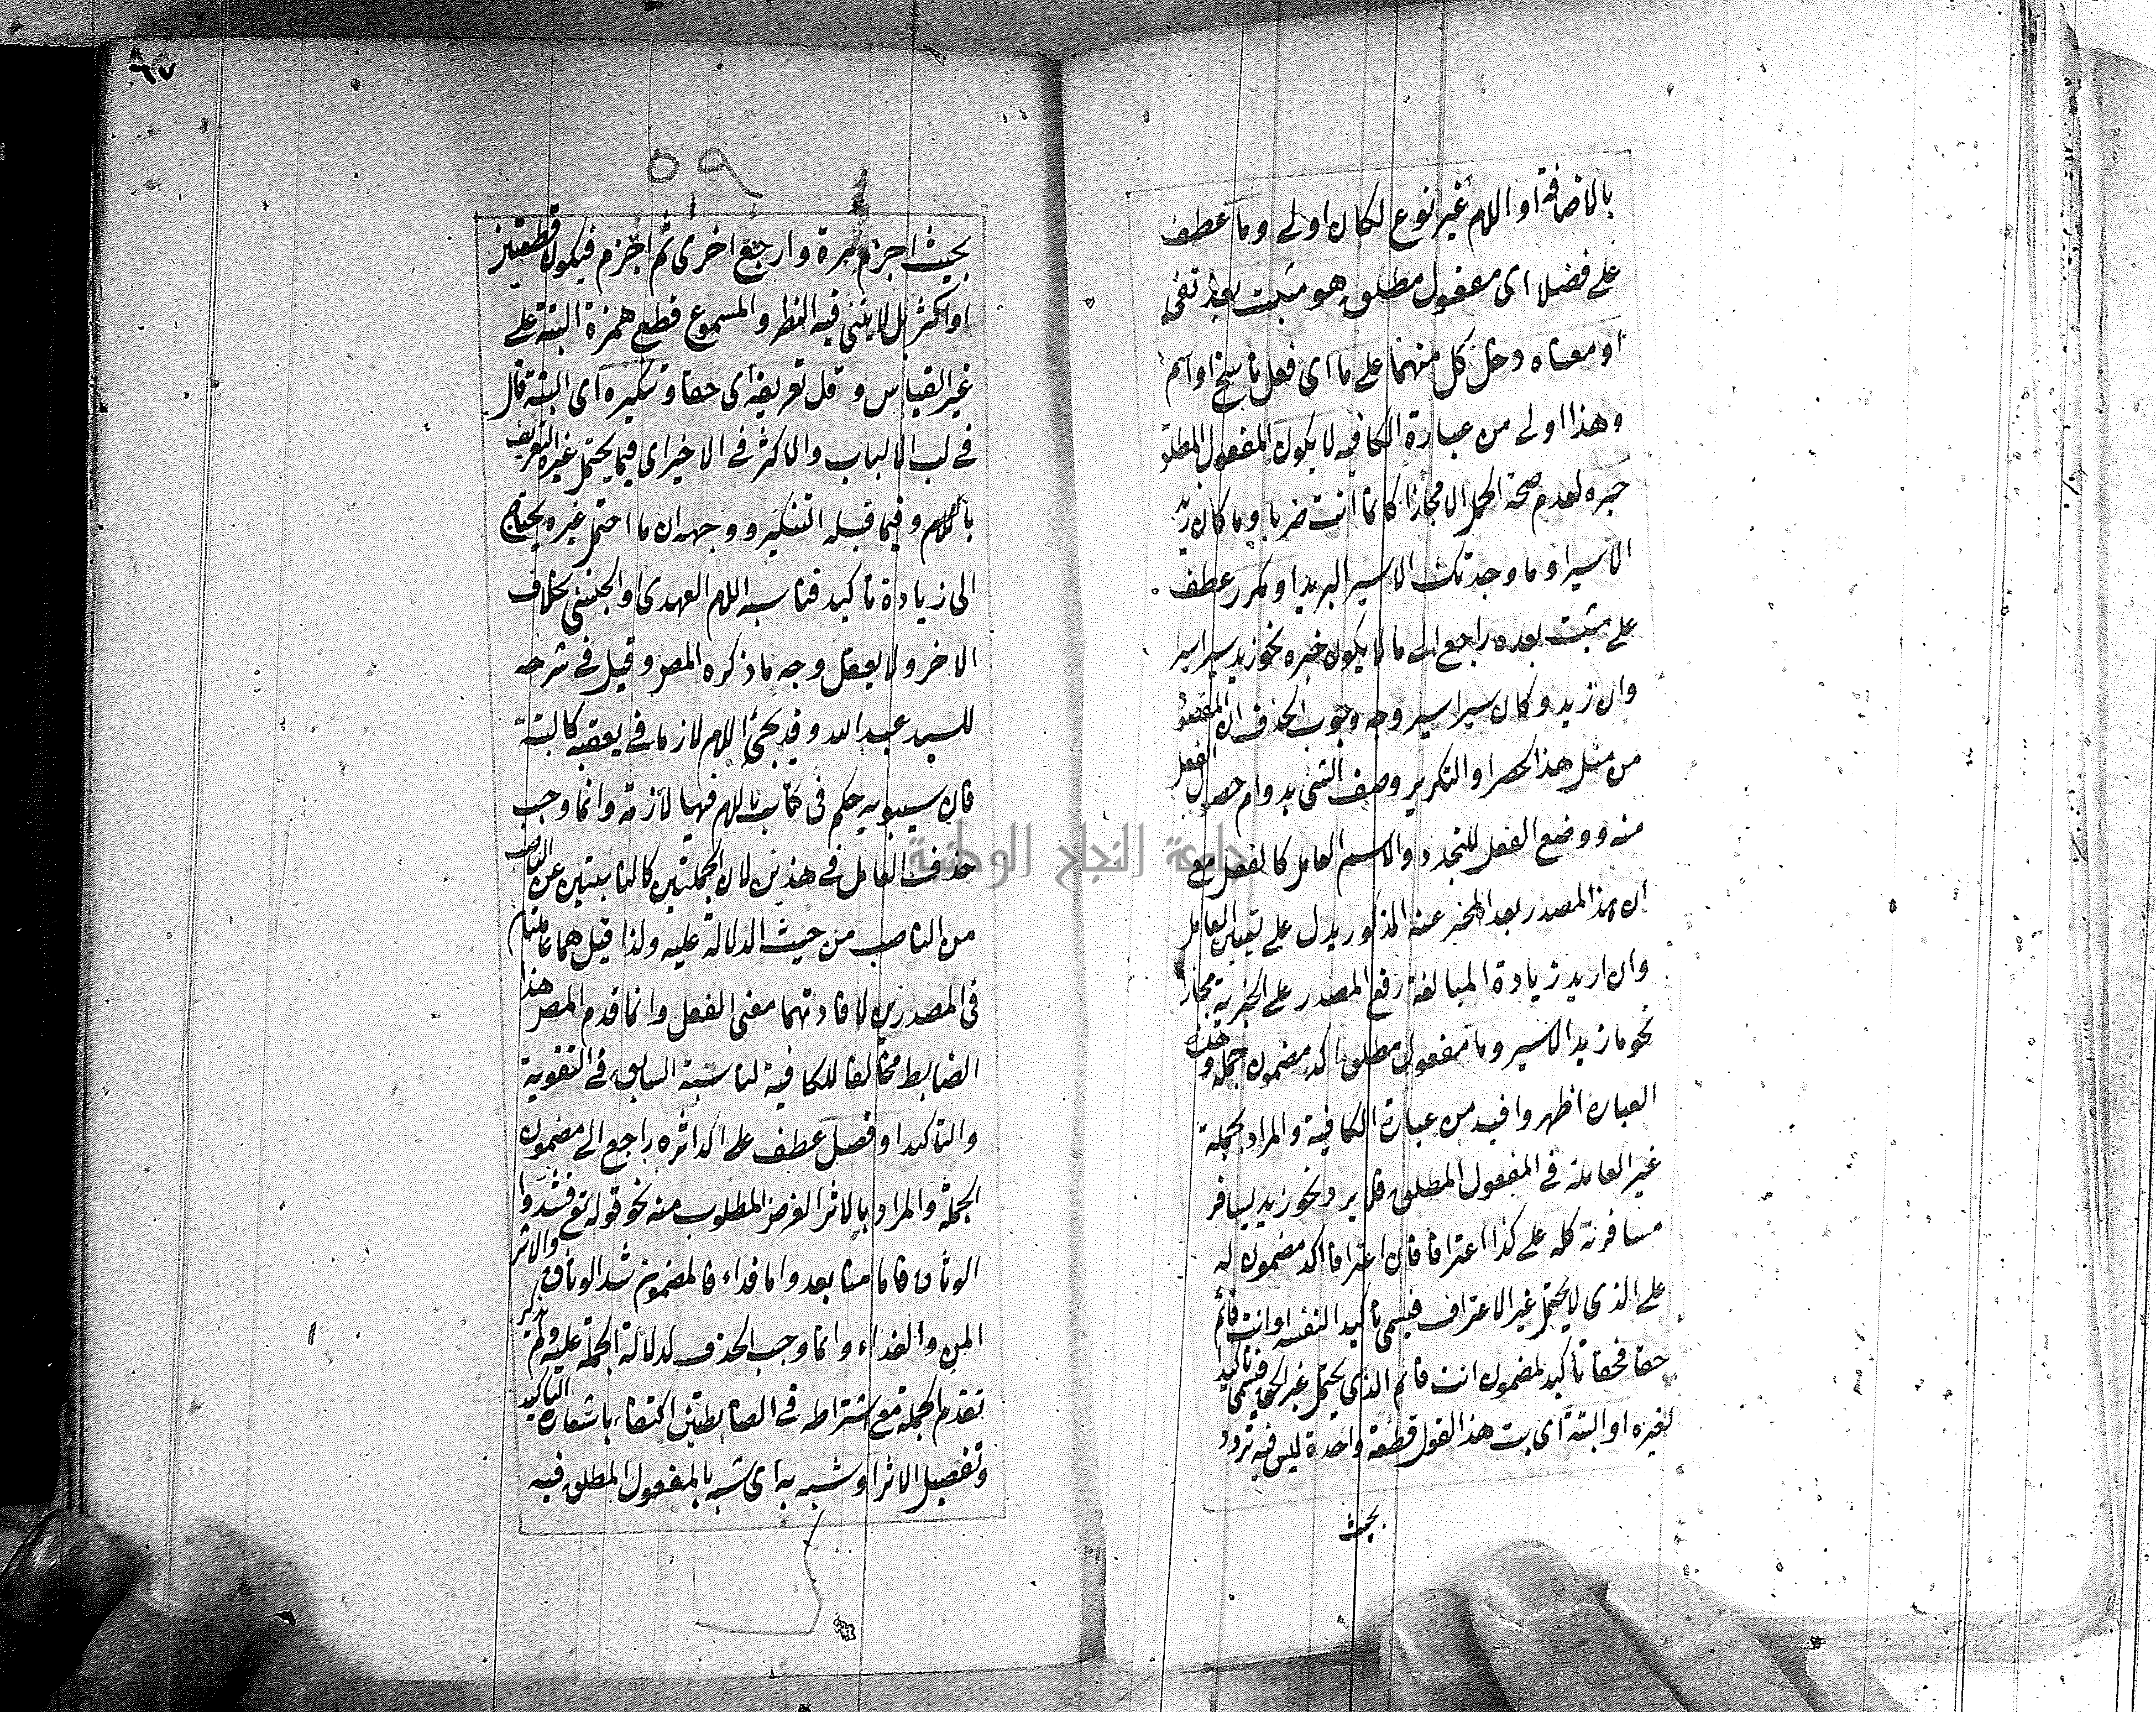 بالاضافة او اللام غير نوع لكان اولى وما عطف
على فضلا اى مفعول مطلق هو مثبت بعد نفى
او معناه دخل كل منهما على ما اى فعل ناسخ او اسم
وهذا اولى من عبارة الكافيه لا يكون المفعول المطلق
خبره لعدم صحة الحمل الا مجازا كانما انت ضربا وما كان زيد
الا سيرا وما وجدتك الا سير البريد او مكرر عطف
على مثبت بعده راجع الى ما لا يكون خبره نحو زيد سيرا سيرا
وان زيد وكان سيرا سيرا وجه وجوب الحذف ان المقصود
من مثل هذا الحصر او التكرير وصف الشئ بدوام حصول الفعل
منه ووضع الفعل للتجدد والاسم العامل كالفعل مع
ان هذا المصدر بعد المخبر عنه المذكور يدل على تعيين العامل
وان اريد زيادة المبالغة رفع المصدر على الخبرية مجازا
نحو ما زيد الا سير وما مفعول مطلق اكد مضمون جملة وهذه
العبارة اظهر وافيد من عبارة الكافية والمراد بجملة
غير العاملة فى المفعول المطلق فلا يرد نحو زيد يسافر
مسافرته كله على كذا اعترافا فان اعترافا اكد مضمون له
على الذى لا يحتمل غير الاعتراف فيسمى تأكيد النفسه او انت قائم
حقا فحقا تأكيد لمضمون انت قائم الذى يحتمل غير الحق فيسمى تأكيد
لغيره او البتة اى بت هذا القول قطعة واحدة ليس فيه تردد
بحيث
٦٧
٥٩
بحيث اجزم مرة وارجع اخرى ثم اجزم فيكون قطعتين
او اكثر بل لا يثنى فيه النظر والمسموع قطع همزة البتة على
غير القياس و قل تعريفه اى حقا وتنكيره اى البتة قال
فى لب الالباب والاكثر فى الاخير اى فيما يحتمل غيره التعريف
باللام وفيما قبله التنكير ووجهه ان ما احتمل غيره يحتاج
الى زيادة تأكيد فناسبه اللام العهدى او الجنسى بخلاف
الاخر ولا يعقل وجه ما ذكره المصر وقيل فى شرحه
للسيد عبد الله وقد يجئ اللام لازما فى بعضه كالبتة
فان سيبويه حكم فى كتابه باللام فيها لازمة وانما وجب
حذف العامل فى هذين لان الجملتين كالنائبتين عن الناصب
من الناصب من حيث الدلالة عليه ولذا قيل هما عاملتان
فى المصدرين لافادتهما معنى الفعل وانما قدم المصر هذا
الضابط مخالفا للكافية لمناسبة السابق فى التقوية
والتأكيد او فصل عطف على اكد اثره راجع الى مضمون
الجملة والمراد بالاثر الغرض المطلوب منه نحو قوله تع فشدوا
الوثاق فاما منا بعد واما فداء فالمضمون شد الوثاق والاثر
المن والفداء وانما وجب الحذف لدلالة الجملة عليه ولم يذكر
تقدم الجملة مع اشتراطه فى الضابطتين اكتفاء باشعار التأكيد
وتفصيل الاثر او شبه به اى شبه بالمفعول المطلق فيه
جامعة النجاح الوطنية